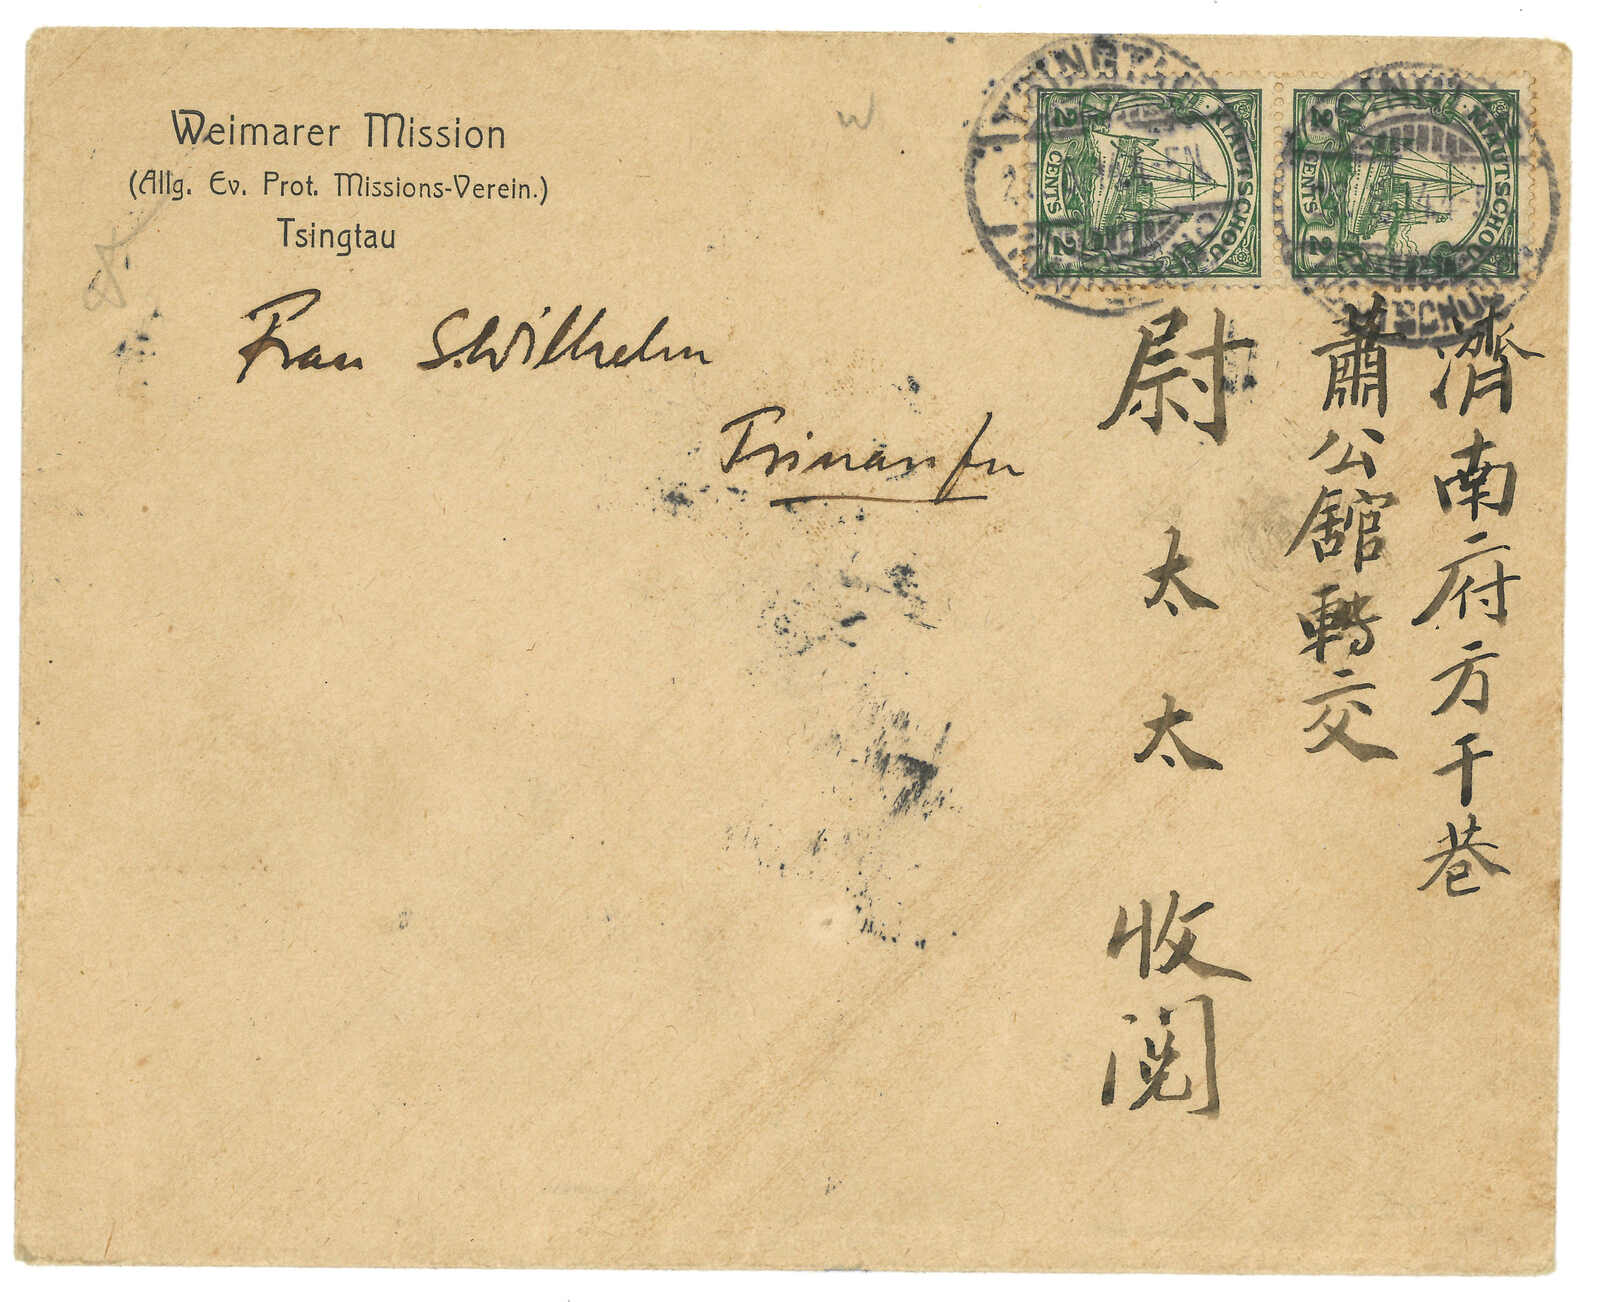 Weimarer Mission
(Allg. Ev. Prot. Missions-Verein.)
Tsingtau
Frau S. Wilhelm
Tsinanfu
濟南府方千巷
蕭公舘轉交
尉太太 收閱
KIAUTSCHOU
2 CENTS 2
KIAUTSCHOU
2 CENTS 2
TSINGTAU